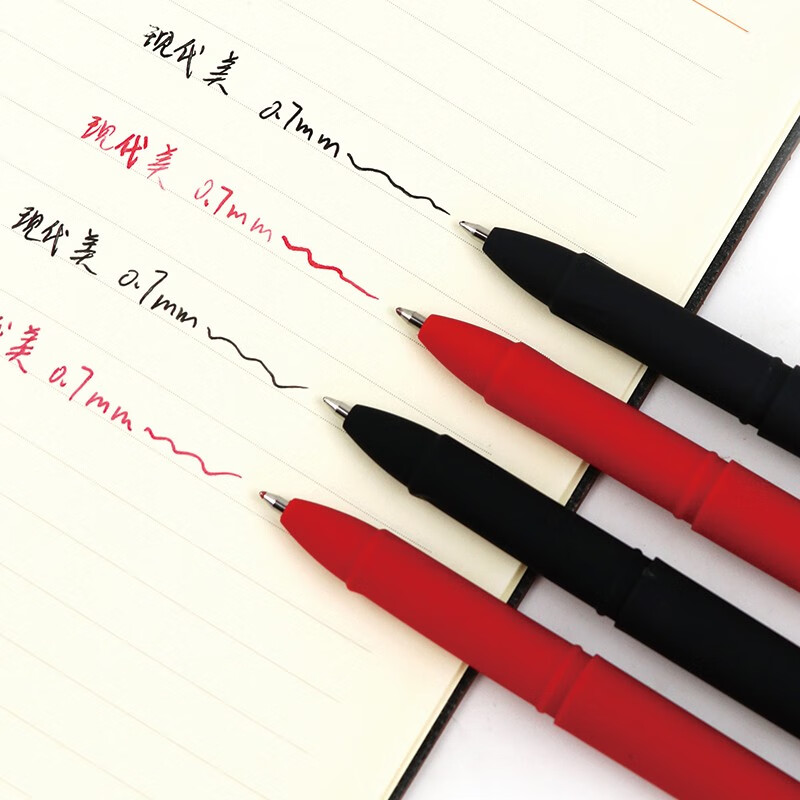 现代美 0.7mm
现代美 0.7mm
现代美 0.7mm
美 0.7mm